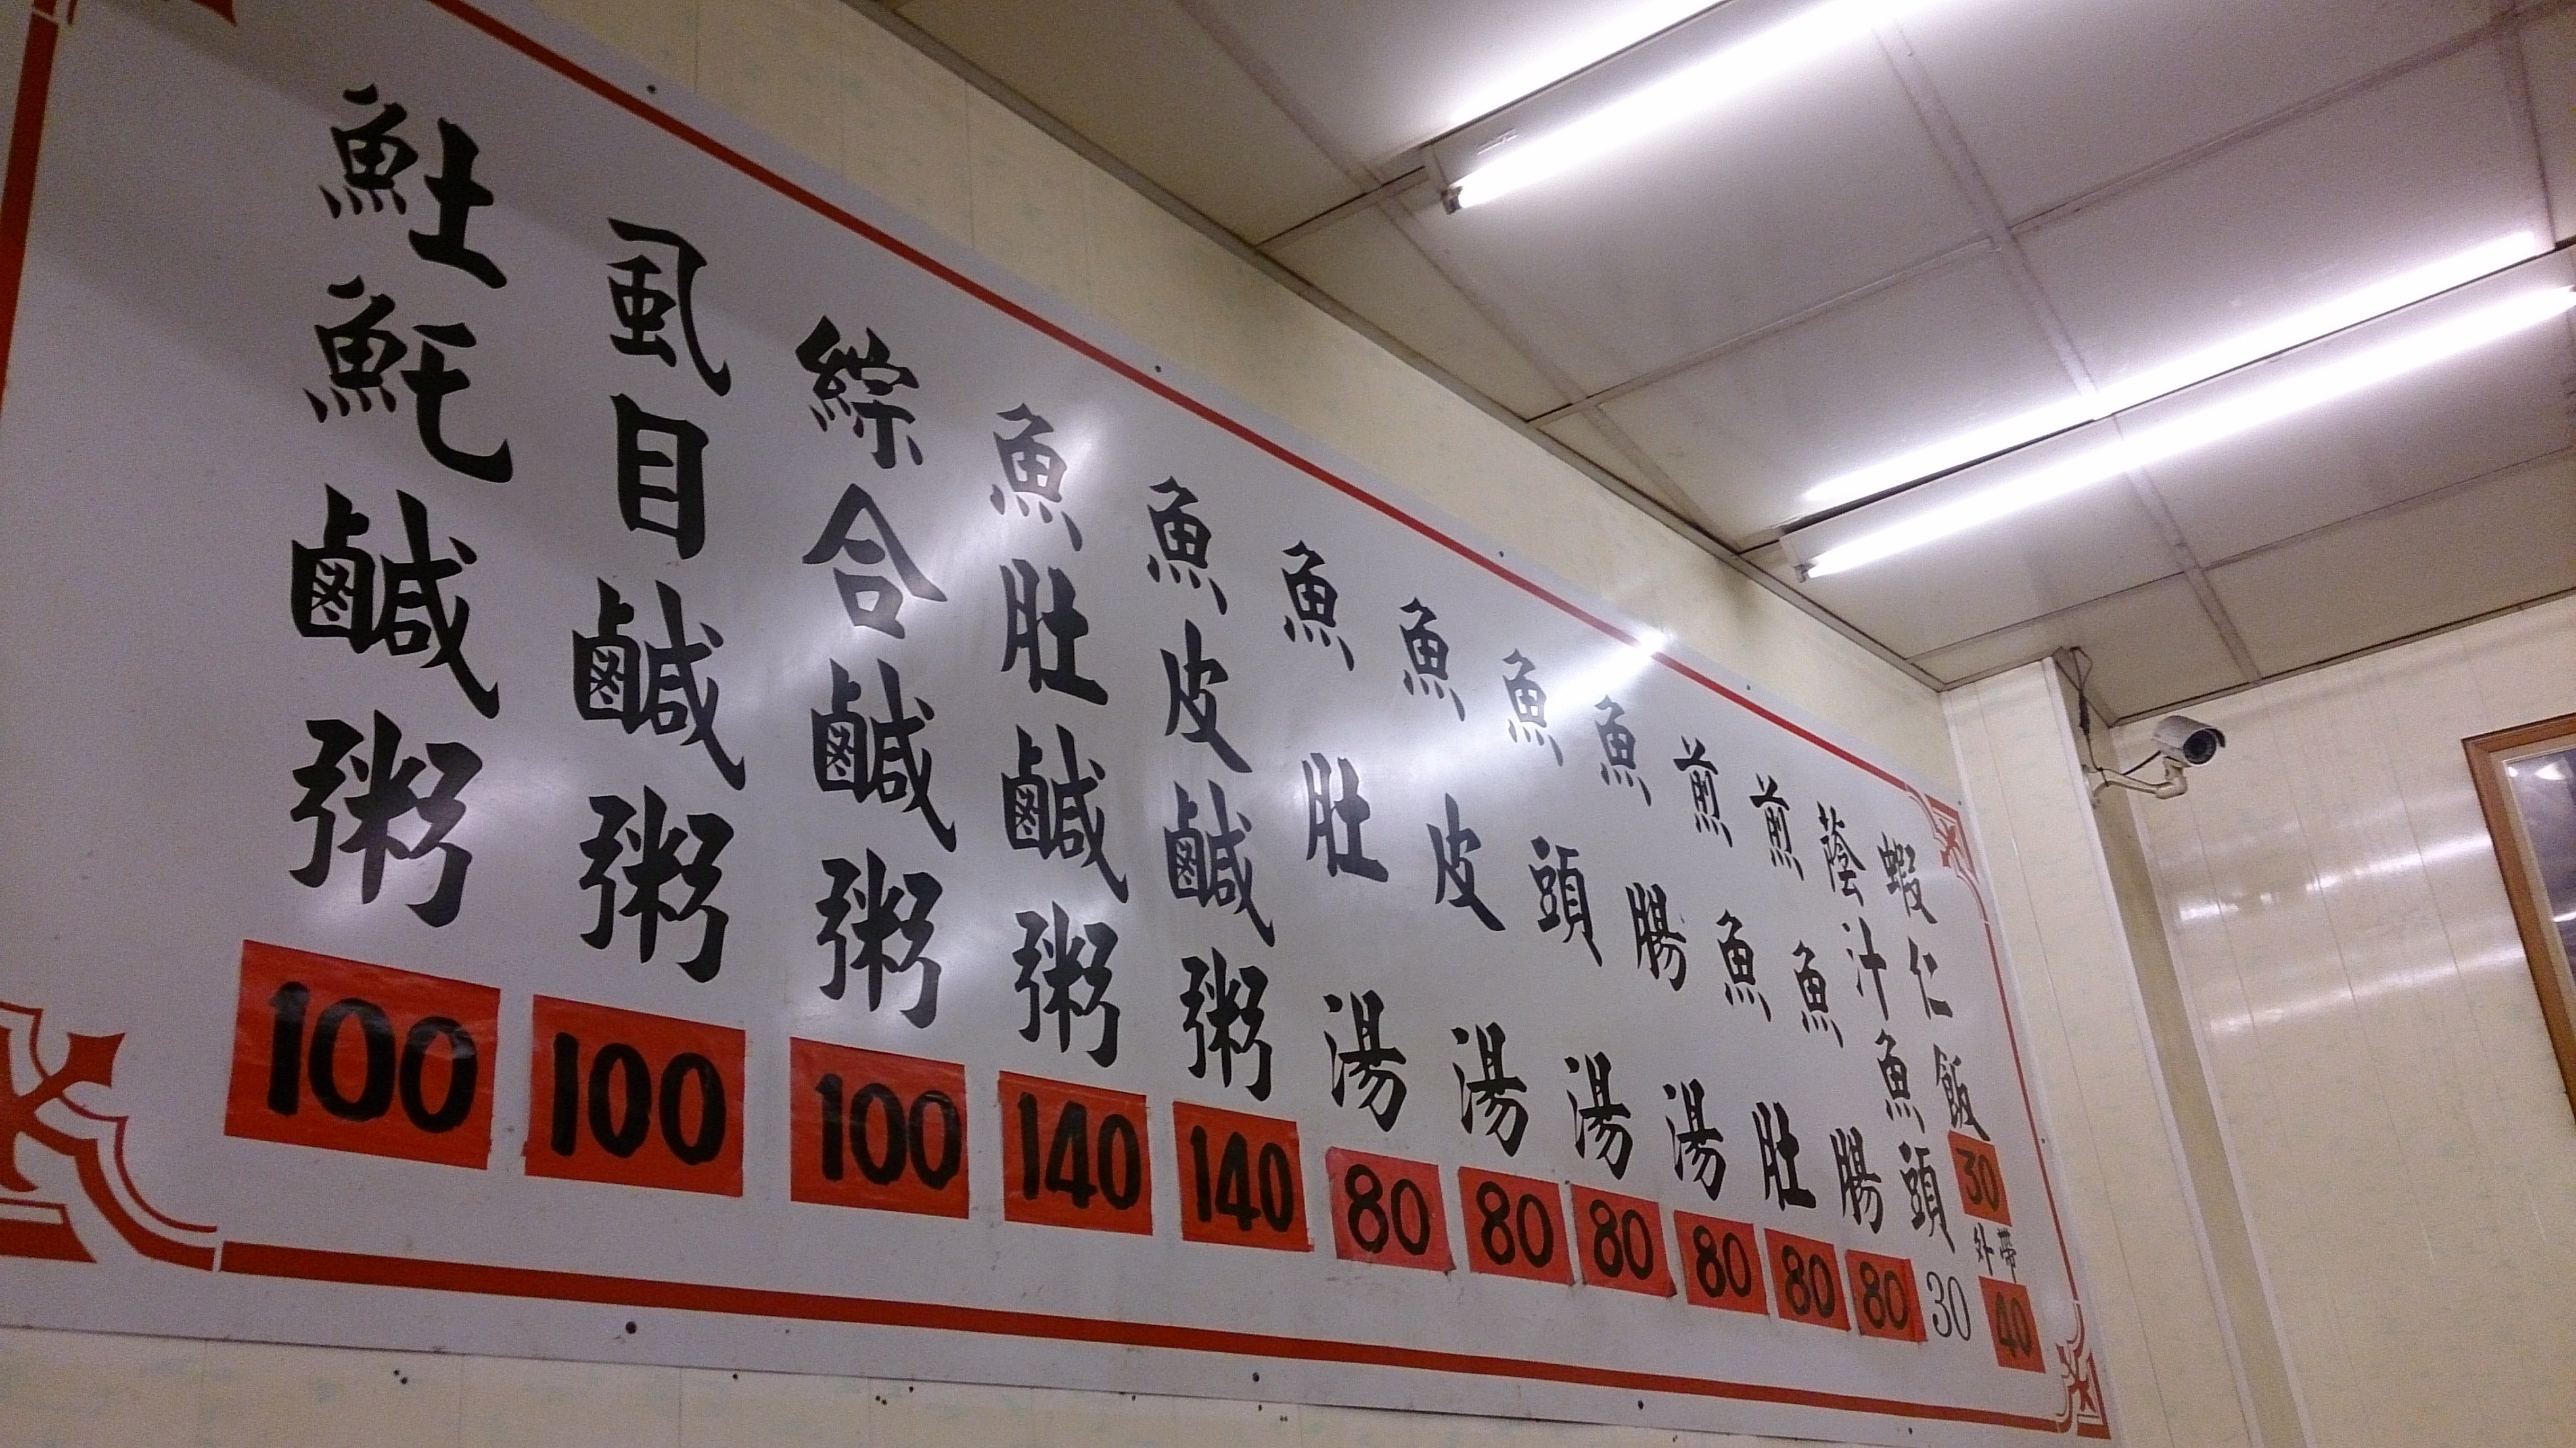 魠魠鹹粥 100
虱目鹹粥 100
綜合鹹粥 100
魚肚鹹粥 140
魚皮鹹粥 140
魚肚湯 80
魚皮湯 80
魚頭湯 80
魚腸湯 80
煎魚肚 80
煎魚腸 80
蔭汁魚頭 30
蝦仁飯 30
外帶 40